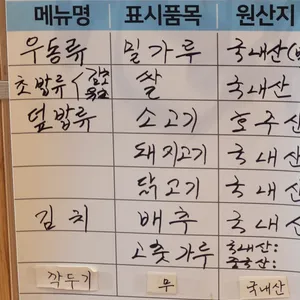 메뉴명 표시품목 원산지
우동류 밀가루 국내산(
초밥류 쌀 국내산
덮밥류 소고기 호주산
돼지고기 국내산
닭고기 국내산
김치 배추 국내산
고춧가루 국내산:
중국산:
깍두기 무 국내산